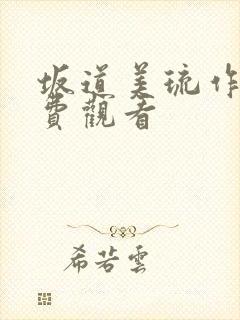 坂道美琉作
費觀看
希若雲